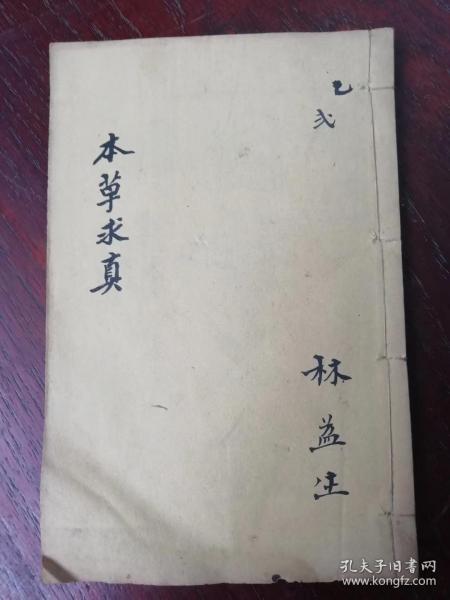 乙
弍
林益生
本草求真
孔夫子旧书网
www.kongfz.com